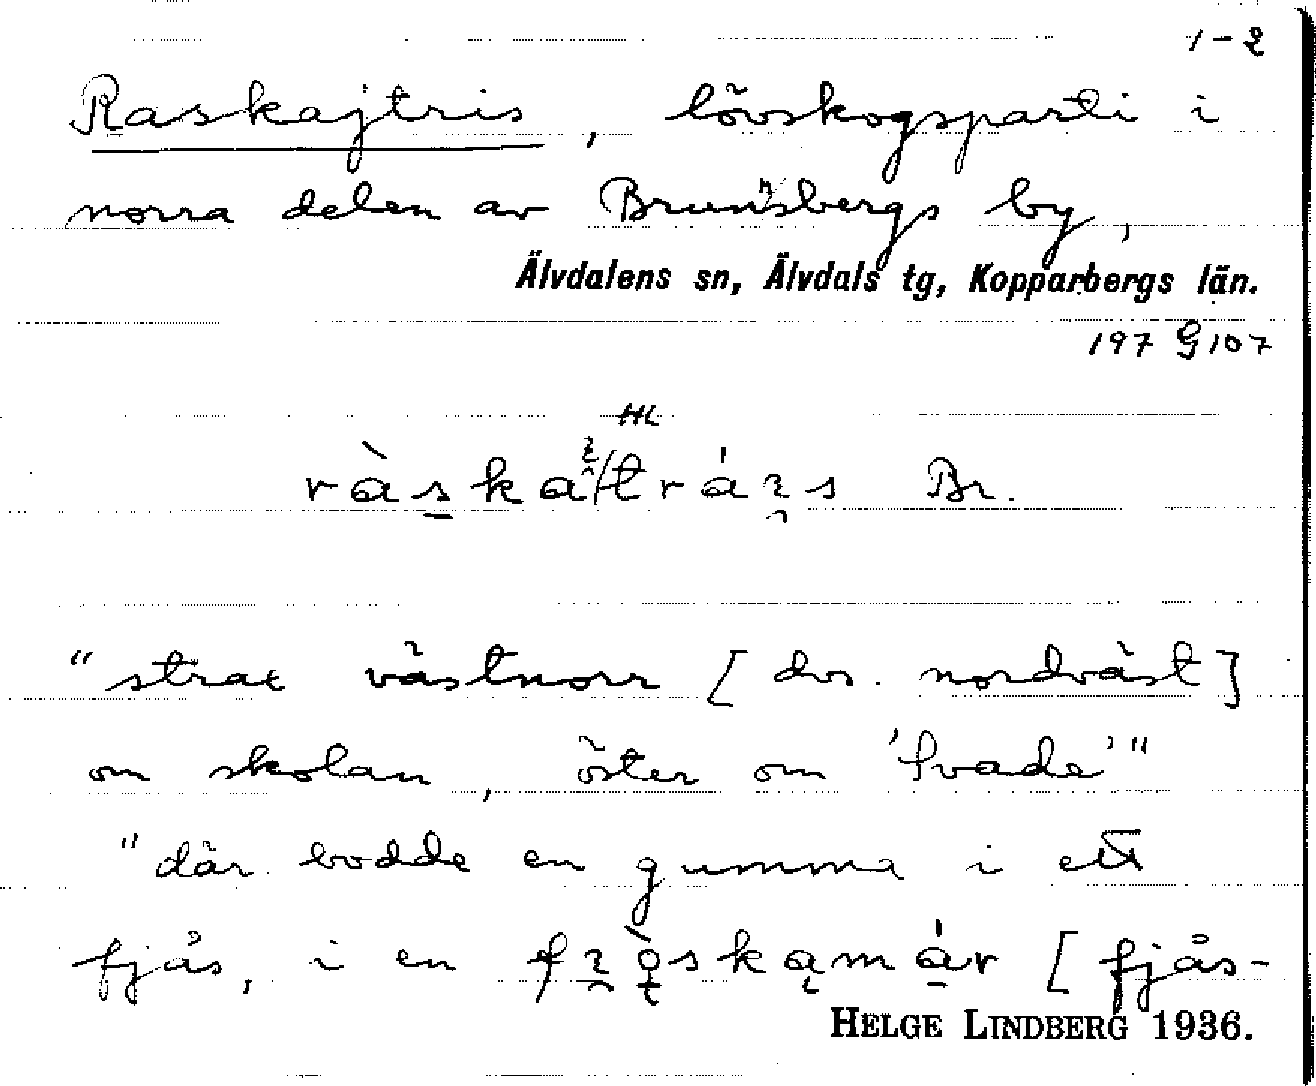 1-2
Raskajtris, lövskogsparti i
norra delen av Brunnsbergs by,
Älvdalens sn, Älvdals tg, Kopparbergs län.
197 G 107
HL
Br.
"strax västnorr [dvs. nordväst]
om skolan, öster om 'Svade'"
"där bodde en gumma i ett
fjås, i en [fjås-
HELGE LINDBERG 1936.